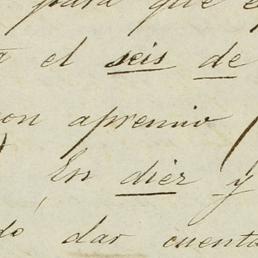 para que e
el seis de
on apremio (
En diez y
do dar cuenta